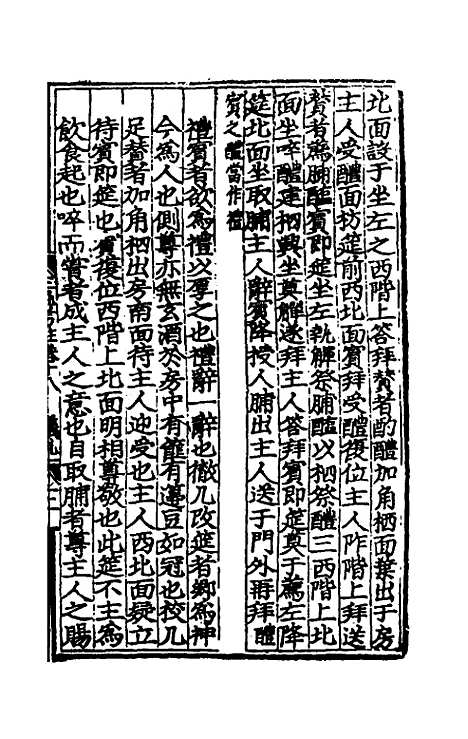 北面設于坐左之西階上答拜贊者酌醴加角柶面葉出于房
主人受醴面枋筵前西北面賓拜受醴復位主人阼階上拜送
贊者薦脯醢賓即筵坐左執觶祭脯醢以柶祭醴三西階上北
面坐啐醴建柶興坐奠觶遂拜主人答拜賓即筵奠于薦左降
筵北面坐取脯主人辭賓降授人脯出主人送于門外再拜醴
賓之醴當作禮
禮賓者欲為禮以厚之也禮辭一辭也徹几改筵者鄉為神
今為人也側尊亦無玄酒於房中有篚有籩豆如冠也校几
足贊者加角柶出房南面待主人迎受也主人西北面疑立
待賓即筵也賓復位西階上北面明相尊敬也此筵不主為
飲食起也啐而嘗者成主人之意也自取脯者尊主人之賜